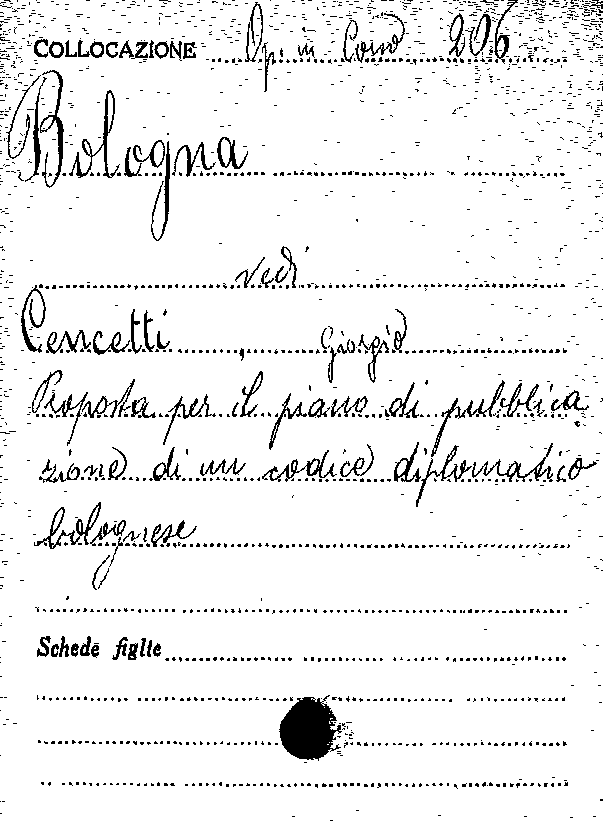 COLLOCAZIONE Op. in Cons 206
Bologna
vedi
Cencetti, Giorgio
Proposta per il piano di pubblica
zione di un codice diplomatico
bolognese
Schede figlie